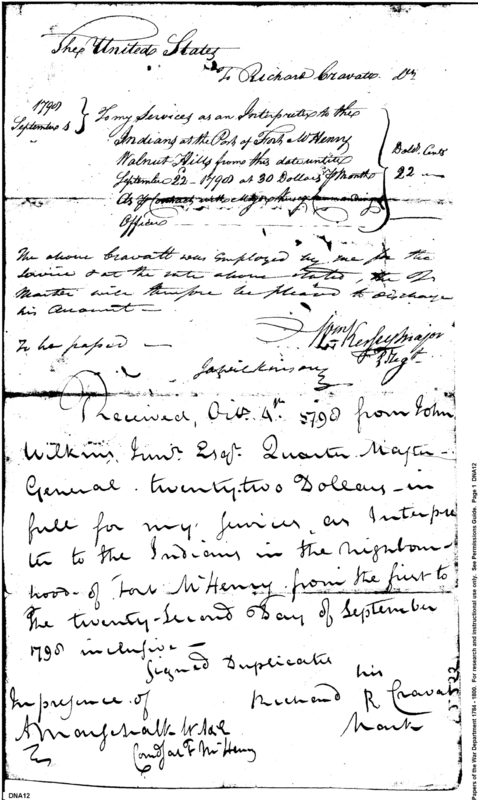 The United States
To Richard Cravatt Dr
1798
September 1
To my Services as an Interpreter to the
Indians at the Post of Fort McHenry
Walnut Hills from this date untill
September 22 - 1798 at 30 Dollars P Month
As P Contract with Major Kersey commanding
Officer
Dolls. Cents
22 -
The above Cravatt was employed by me for the
Service & at the rate above stated, the Qr
Master will therefore be pleased to discharge
his account -
Wm Kersey Major
3 Regt
To be passed -
Ja Wilkinson
Received, Octr. 4th 1798 from John
Wilkins Junr. Esqr. Quarter Master
General twenty-two Dollars - in
full for my services, as Interpre
ter to the Indians in the Neighbour
hood of Fort McHenry from the first to
the twenty-Second Day of September
1798 inclusive -
Signed Duplicates
In presence of
A Marschalk
Comdg at F McHenry
his
Richard R Cravat
Mark
DNA12
Papers of the War Department 1784 - 1800. For research and instructional use only. See Permissions Guide. Page 1 DNA12